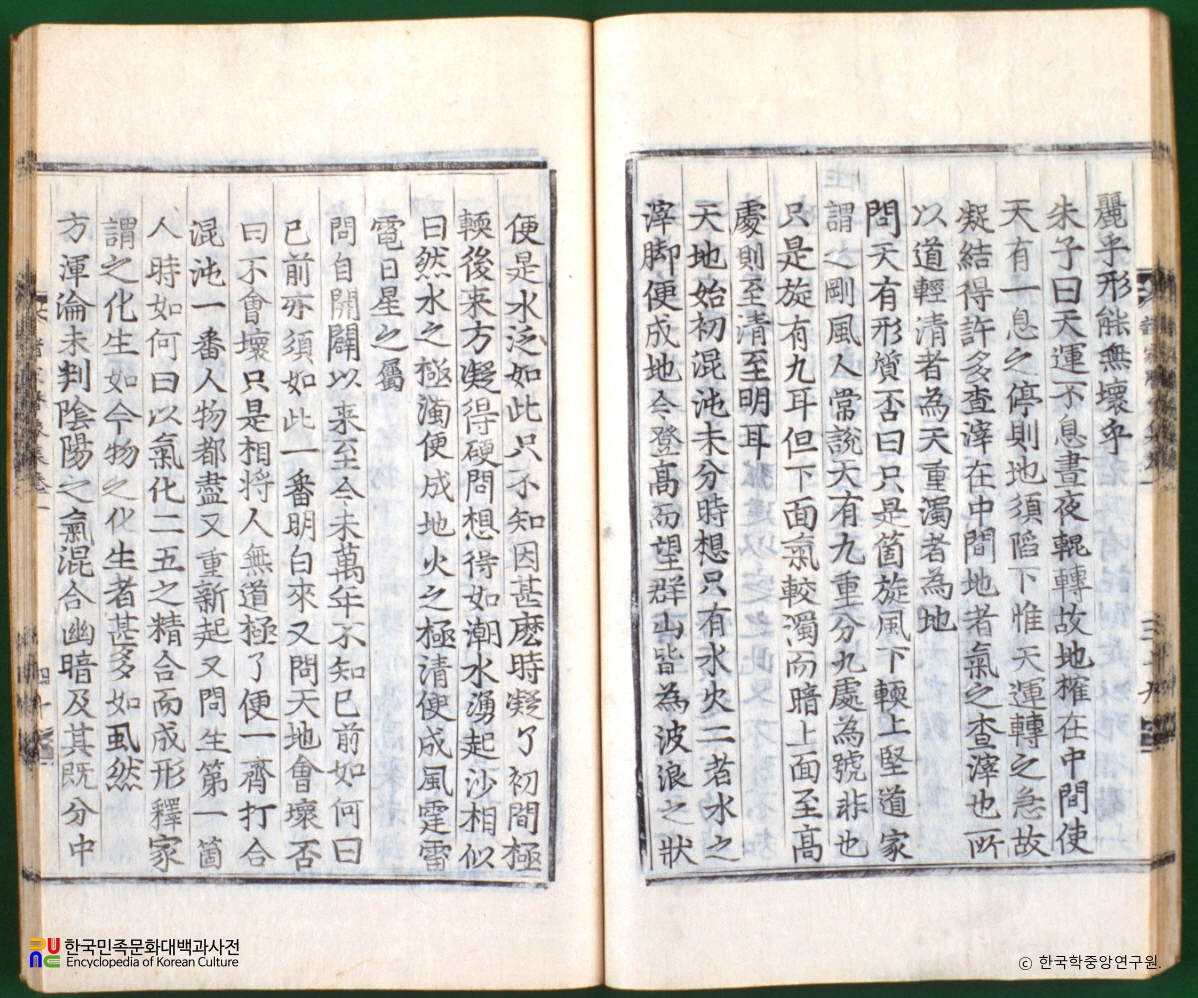 麗乎形能無壞乎
朱子曰天運不息晝夜輥轉故地榷在中間使
天有一息之停則地須陷下惟天運轉之急故
凝結得許多查滓在中間地者氣之查滓也所
以道輕清者為天重濁者為地
問天有形質否曰只是箇旋風下輭上堅道家
謂之剛風人常說天有九重分九處為號非也
只是旋有九耳但下面氣較濁而暗上面至高
處則至清至明耳
天地始初混沌未分時想只有水火二者水之
滓脚便成地今登高而望群山皆為波浪之狀
便是水泛如此只不知因甚麽時凝了初間極
輭後来方凝得硬問想得如潮水湧起沙相似
曰然水之極濁便成地火之極清便成風霆雷
電日星之屬
問自開闢以来至今未萬年不知已前如何曰
已前亦須如此一番明白來又問天地會壞否
曰不會壞只是相將人無道極了便一齊打合
混沌一番人物都盡又重新起又問生第一箇
人時如何曰以氣化二五之精合而成形釋家
謂之化生如今物之化生者甚多如虱然
方渾淪未判陰陽之氣混合幽暗及其既分中
한국민족문화대백과사전
Encyclopedia of Korean Culture
ⓒ 한국학중앙연구원.